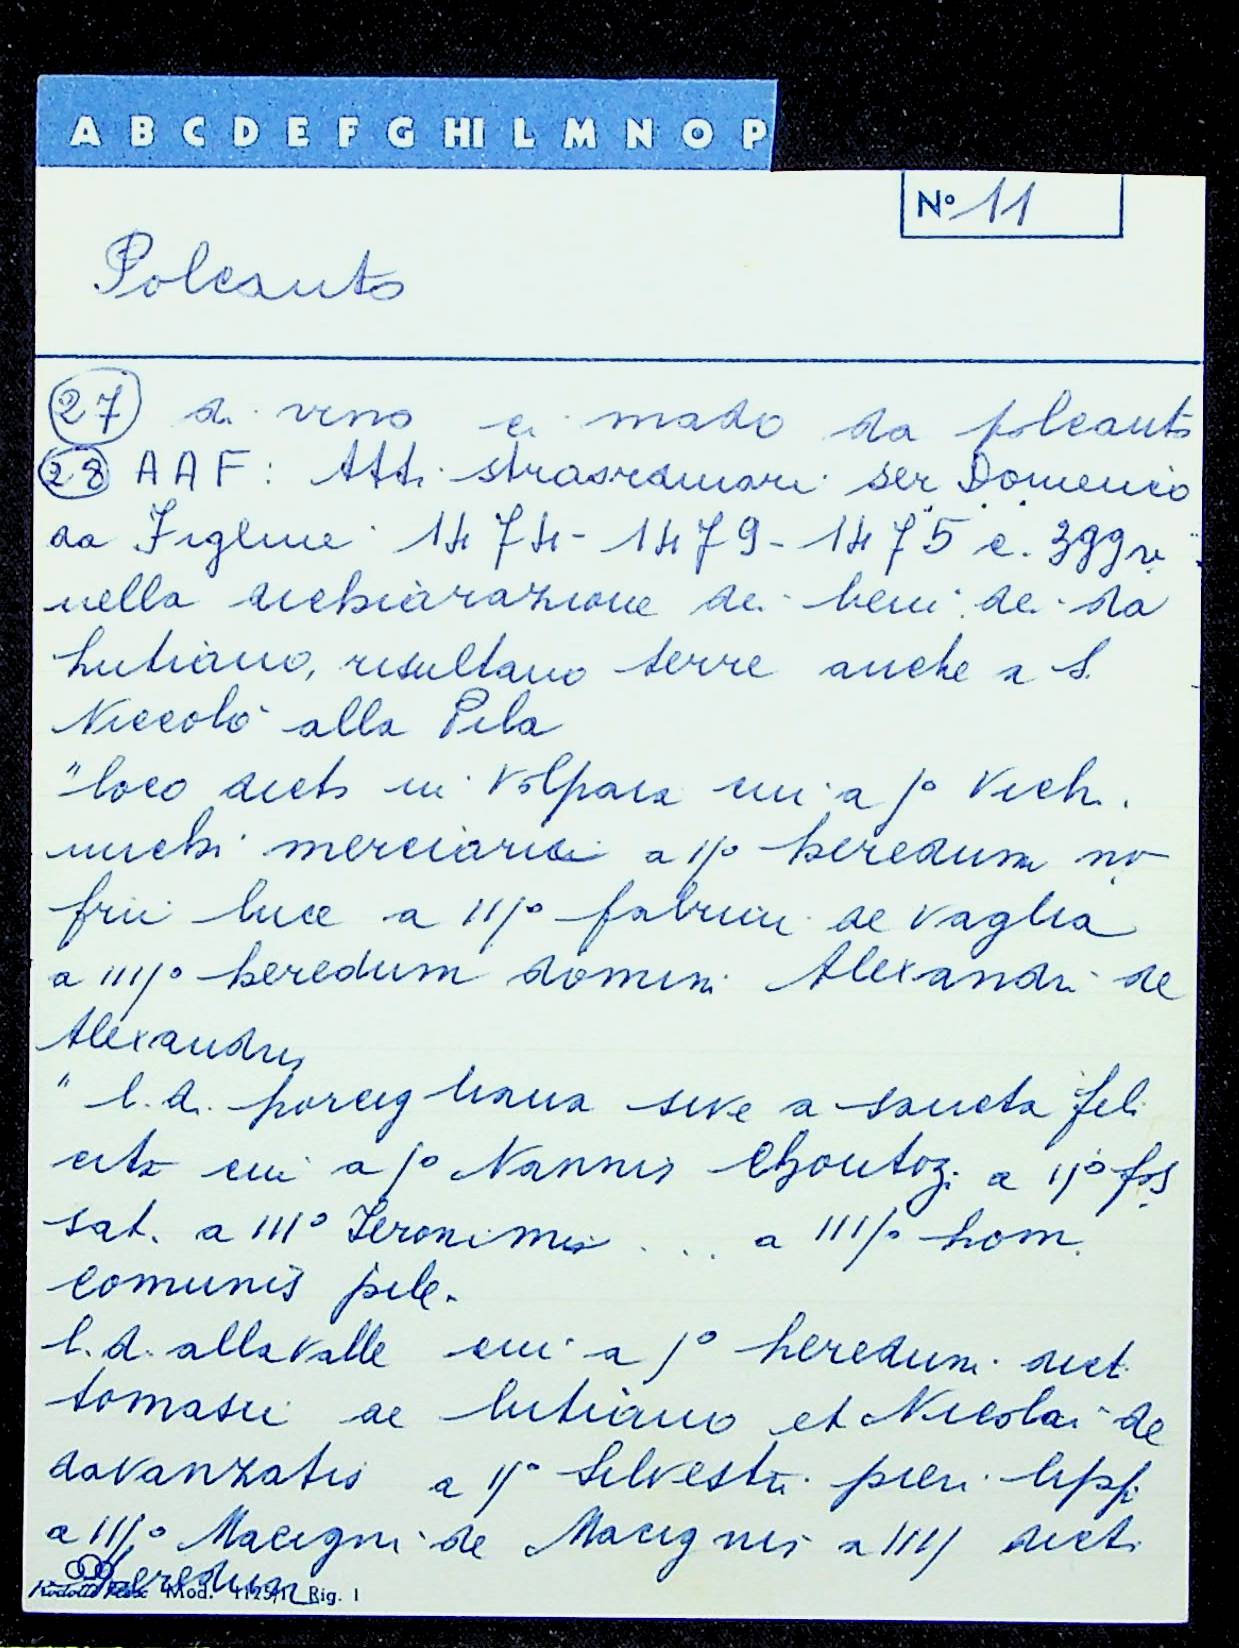 A B C D E F G HI L M N O P
Nº 11
Polcanto
27 di vino ci mado da polcanto
28 AAF: Atti straordinari ser Domenico
da Figline 1474-1479-1475 c. 399v
nella dichiarazione dei beni dei da
Lutiano, risultano terre anche a S.
Niccolò alla Pila
"loco dicto in Volpaia cui a jº Vich.
nuchi merciarii a ijº heredum no
frii luce a iijº fabrini de Vaglia
a iiijº heredum domini Alexandri de
Alexandris
" l.d. porcigliana sive a sancta feli
cita cui a jº Nannis Choutozi a ijº fos
sat. a IIIº Jeronimi .... a IIIjº hom.
comunis pile.
l.d. alla valle cui a jº heredum dict.
tomasii de lutiano et Nicolai de
davanzatis a ijº Silvestri pieri lippi
a iijº Macigni de Macignis a IIIj dicti
heredum
Mod. 1125/1 Rig. 1